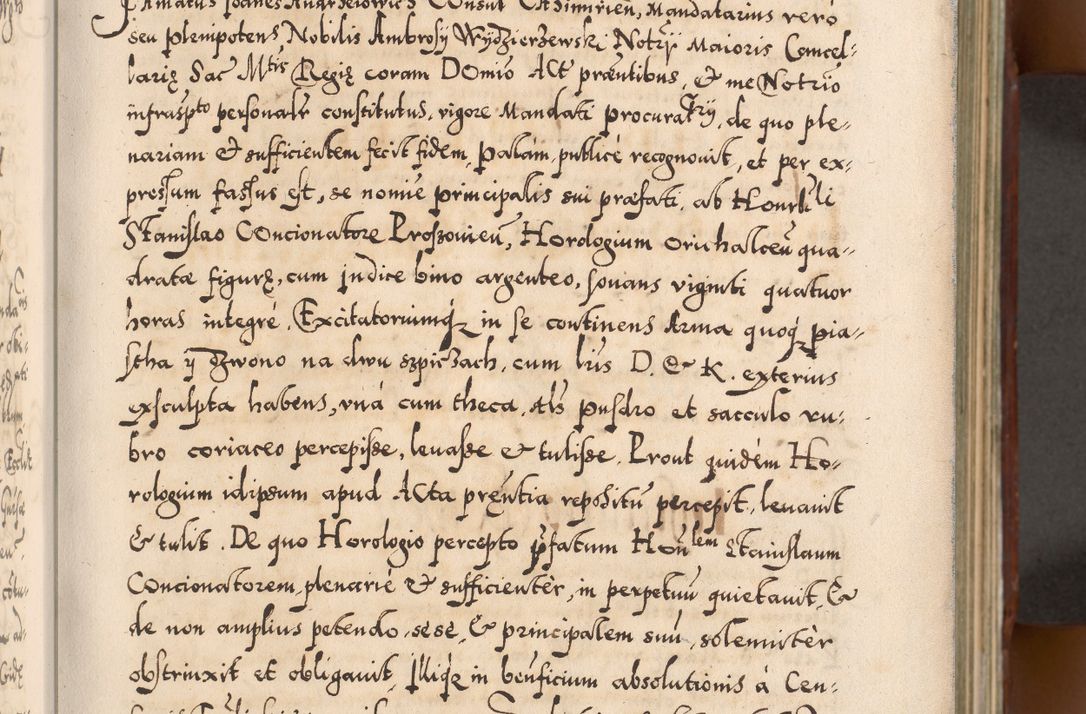 Famatus Joanes Andrzeiowicz Consul Casimirien, Mandatarius vero
seu plenipotens Nobilis Ambrosy Wydzierzewski Notry Maioris Cancel-
larię Sac Mtis Regię coram Domio Act præntibus, & me Notrio
infraspto personalr constitutus, vigore Mandati procuratry, de quo ple-
nariam & sufficientem fecit fidem, palàm publicè recognouit, et per ex-
pressum fassus est, se nomie principalis sui præfati, ab Honrbli
Stanislao Concionatore Proszouień, Horologium orichalceū qua-
dratæ figurę, cum Jndice bino argenteo, sonans viginti quatuor
horas integrè, Excitatoriumq̨ in se continens Arma quoq̨ pia-
stha ÿ dzwono na dwu szpiczach, cum lris D. & K. exterius
exsculpta habens, vnà cum theca, Als pusdro et sacculo ru-
bro coriaceo percepisse, leuasse & tulisse. Prout quidèm Ho-
rologium idipsum apud Acta pręntia repositū percepit, leuauit
& tulit. De quo Horologio percepto pfatum Honlem Stanislaum
Concionatorem, plenariè & sufficientèr, in perpetuū quietauit, &
de non amplius petendo, sese & principalem suū, solemnitèr
obstrinxit et obligauit, Jlliq̨ in beneficium absolutionis à Cen-